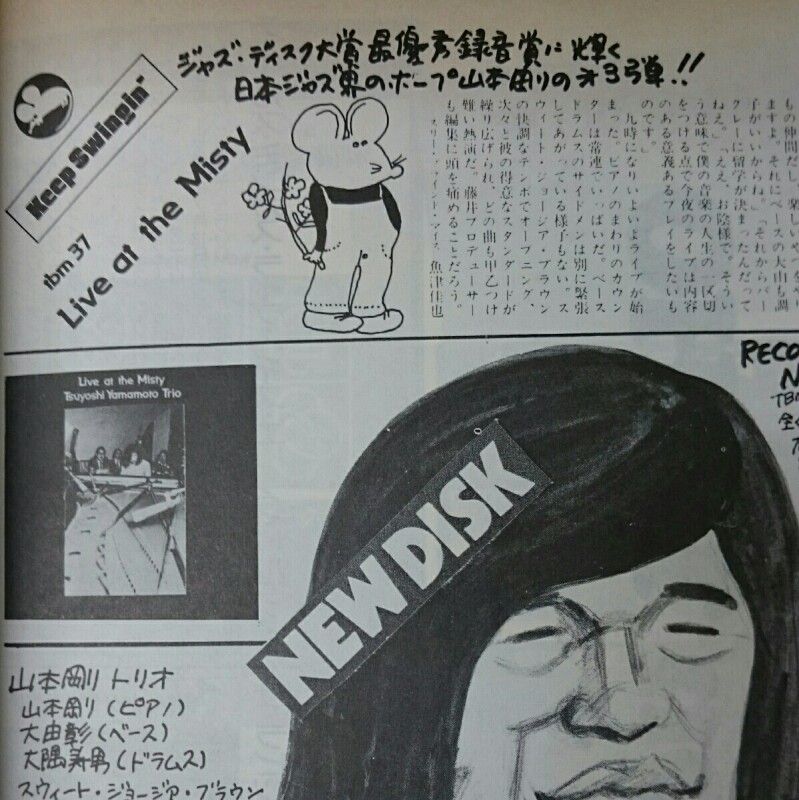 ジャズ・ディスク大賞最優秀録音賞に輝く
日本ジャズ界のホープ山本剛りのオ3弾!!
Keep Swingin"
tbm 37
Live at the Misty
もの仲間だし、楽しいやつ
ますよ。それにベースの大由も調
子がいいからね。「それからバー
クレーに留学が決まったんだって
ねえ。「ええ、お陰様で。そうい
う意味で僕の音楽の人生の一区切
をつける点で今夜のライブは内容
のある意義あるプレイをしたいも
のです。」
九時になりいよいよライブが始
まった。ピアノのまわりのカウン
ターは常連でいっぱいだ。ベース
ドラムスのサイドメンは別に緊張
してあがっている様子もない。ス
ウィート・ジョージア・ブラウン
の快調なテンポでオープニング、
次々と彼の得意なスタンダードが
繰り広げられ、どの曲も甲乙つけ
難い熱演だ。藤井プロデューサー
も編集に頭を痛めることだろう。
スリー・ブラインド・マイス 魚津佳也
Live at the Misty
Tsuyoshi Yamamoto Trio
NEW DISK
RECO
N
TBM
全
山本剛りトリオ
山本剛り(ピアノ)
大由彰(ベース)
大隅寿男(ドラムス)
スウィート・ジョージア・ブラウン